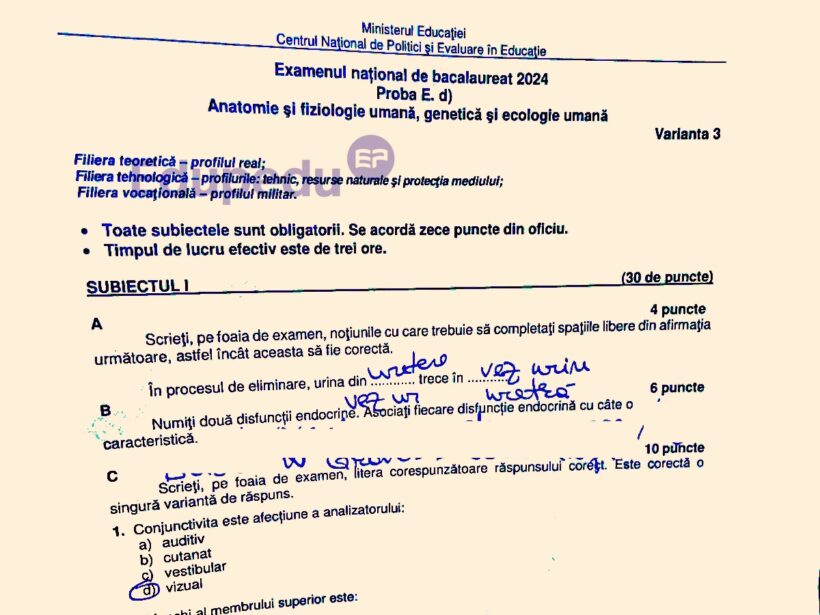 Ministerul Educației
Centrul Național de Politici și Evaluare în Educație
Examenul național de bacalaureat 2024
Proba E. d)
Anatomie și fiziologie umană, genetică și ecologie umană
Varianta 3
Filiera teoretică – profilul real;
Filiera tehnologică – profilurile: tehnic, resurse naturale și protecția mediului;
Filiera vocațională – profilul militar.
Edupedu EP
• Toate subiectele sunt obligatorii. Se acordă zece puncte din oficiu.
• Timpul de lucru efectiv este de trei ore.
SUBIECTUL I (30 de puncte)
A 4 puncte
Scrieți, pe foaia de examen, noțiunile cu care trebuie să completați spațiile libere din afirmația
următoare, astfel încât aceasta să fie corectă.
uretere vez urin
În procesul de eliminare, urina din ............ trece în ............
vez uri uretră
B 6 puncte
Numiți două disfuncții endocrine. Asociați fiecare disfuncție endocrină cu câte o
caracteristică.
C 10 puncte
Scrieți, pe foaia de examen, litera corespunzătoare răspunsului corect. Este corectă o
singură variantă de răspuns.
1. Conjunctivita este afecțiune a analizatorului:
a) auditiv
b) cutanat
c) vestibular
d) vizual
al membrului superior este: